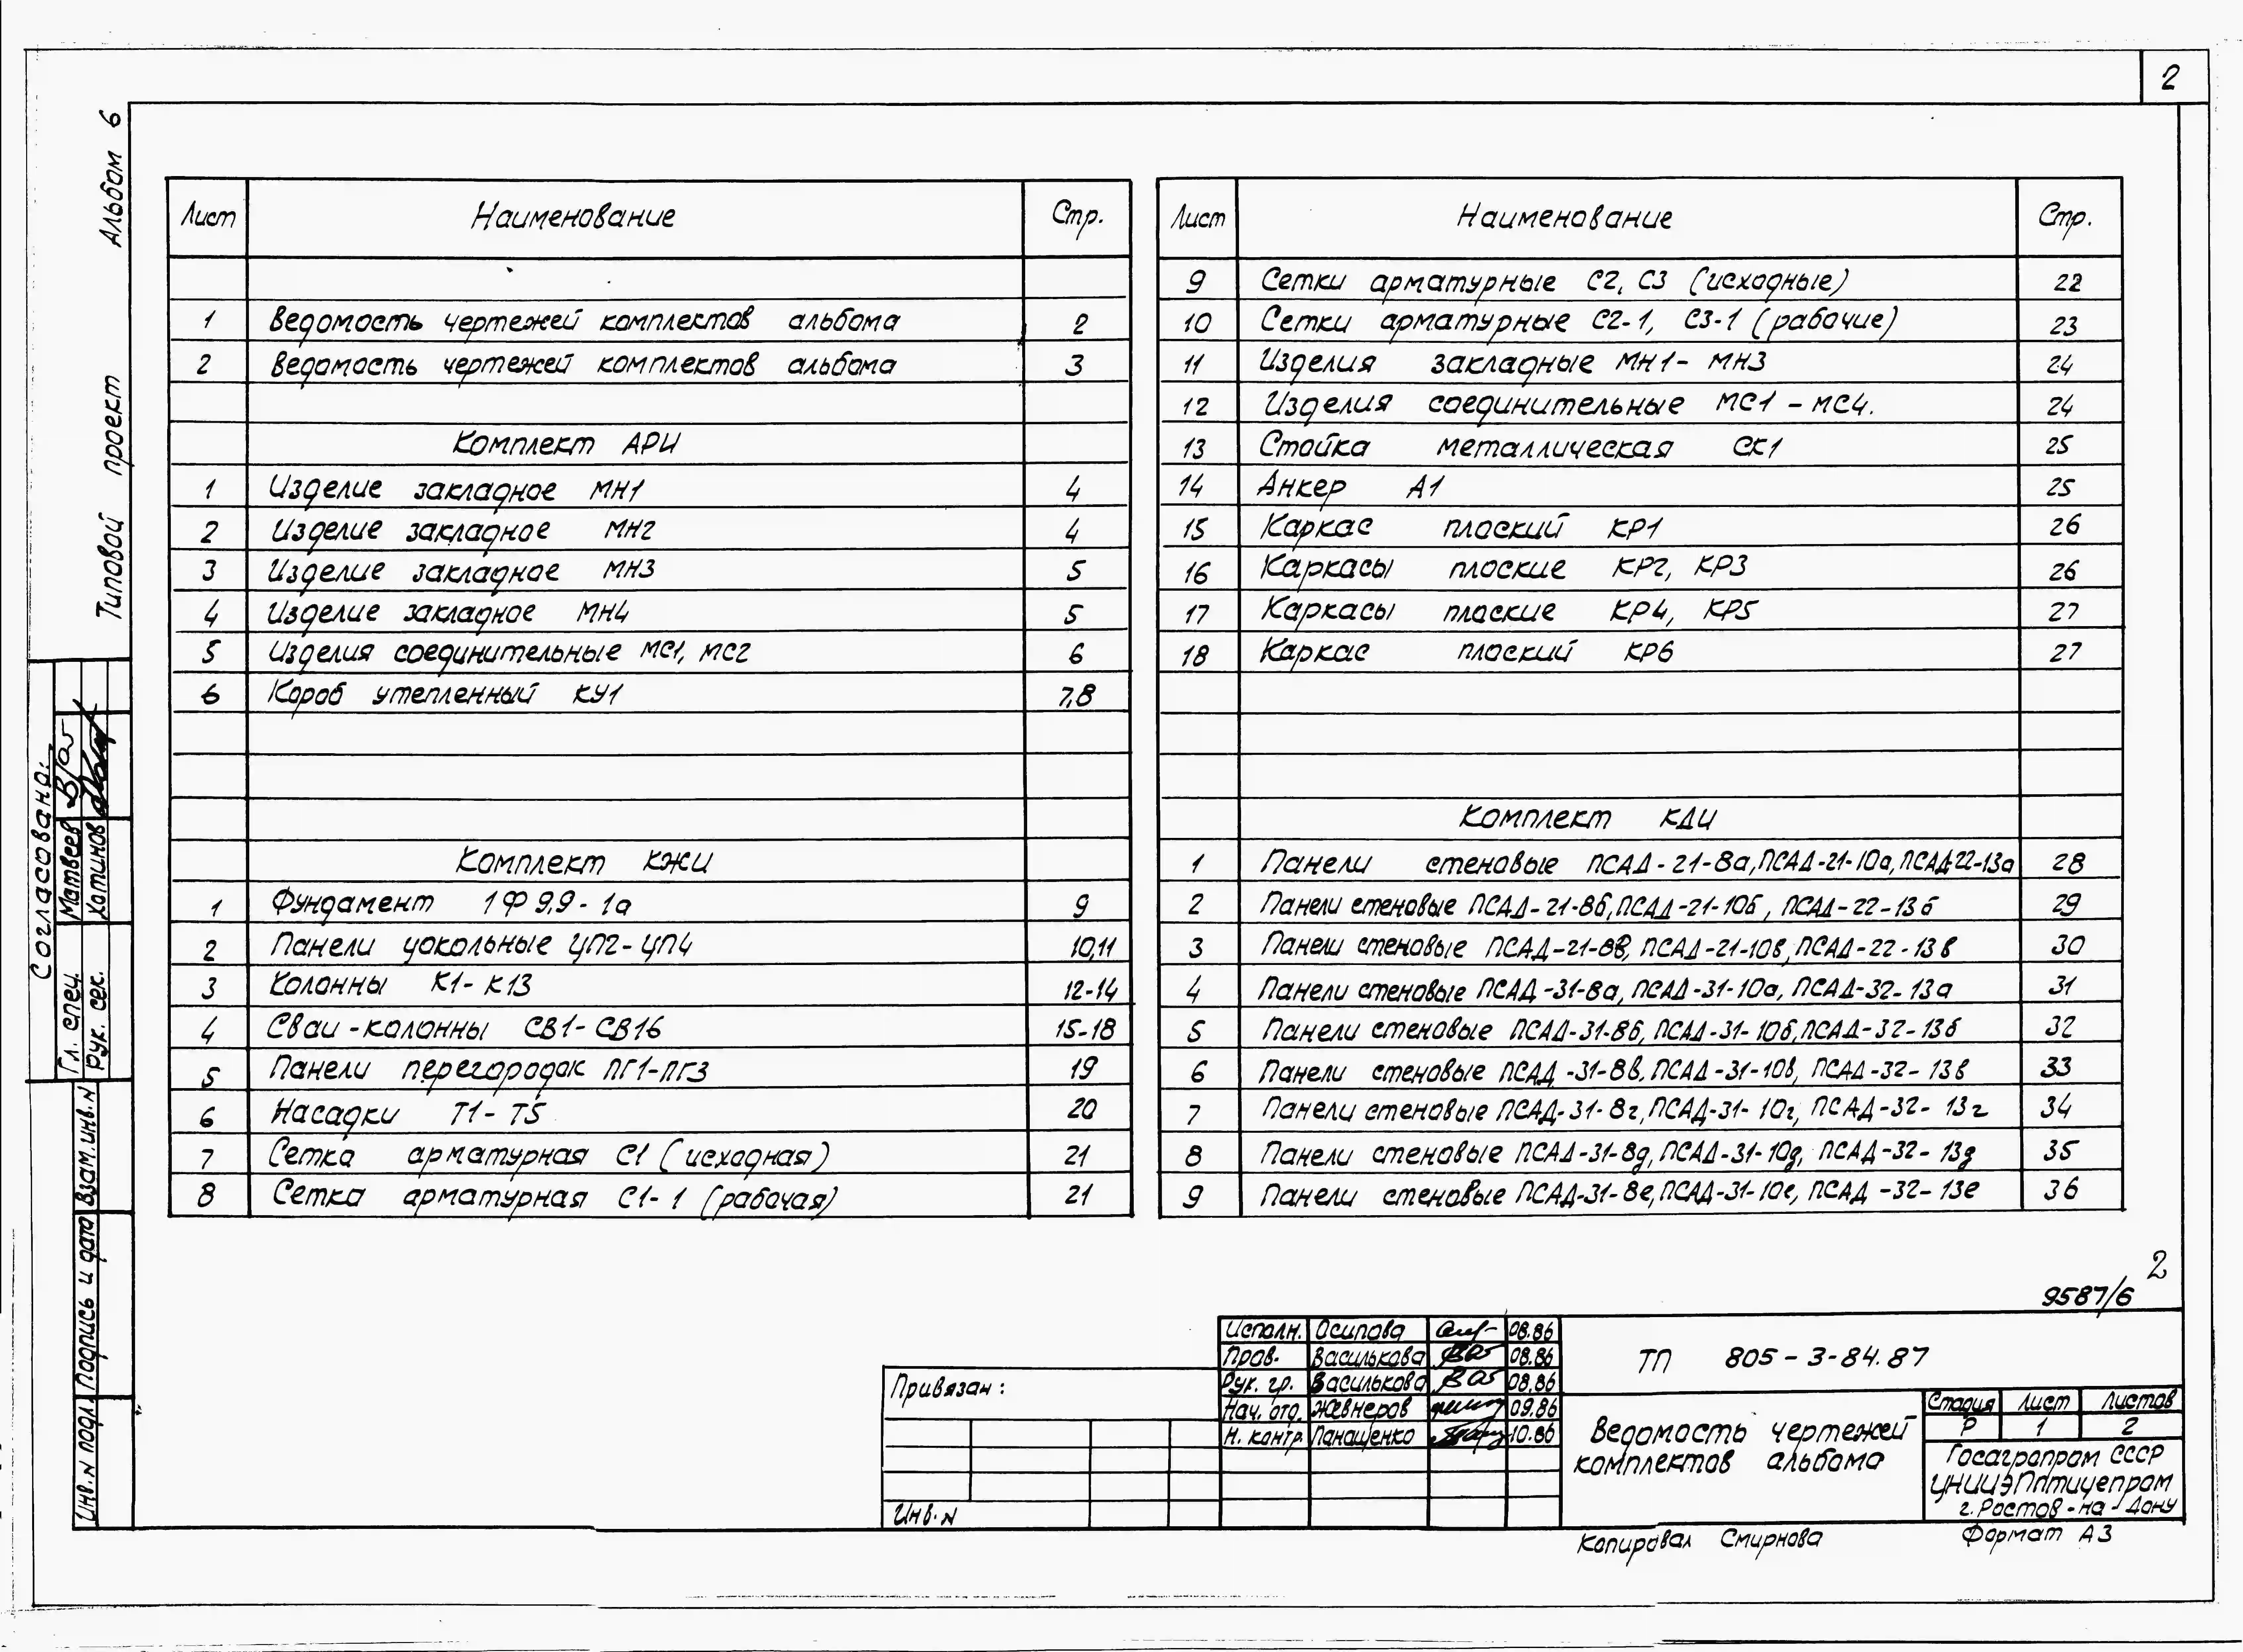 2
Альбом 6
Типовой проект
Лист Наименование Стр.
1 Ведомость чертежей комплектов альбома 2
2 Ведомость чертежей комплектов альбома 3
Комплект АРИ
1 Изделие закладное МН1 4
2 Изделие закладное МН2 4
3 Изделие закладное МН3 5
4 Изделие закладное МН4 5
5 Изделия соединительные МС1, МС2 6
6 Короб утепленный КУ1 7,8
Комплект КЖИ
1 Фундамент 1Ф 9.9-1а 9
2 Панели цокольные ЦП2-ЦП4 10,11
3 Колонны К1-К13 12-14
4 Сваи-колонны СВ1-СВ16 15-18
5 Панели перегородок ПГ1-ПГ3 19
6 Насадки Т1-Т5 20
7 Сетка арматурная С1 (исходная) 21
8 Сетка арматурная С1-1 (рабочая) 21
Лист Наименование Стр.
9 Сетки арматурные С2, С3 (исходные) 22
10 Сетки арматурные С2-1, С3-1 (рабочие) 23
11 Изделия закладные МН1-МН3 24
12 Изделия соединительные МС1-МС4. 24
13 Стойка металлическая СК1 25
14 Анкер А1 25
15 Каркас плоский КР1 26
16 Каркасы плоские КР2, КР3 26
17 Каркасы плоские КР4, КР5 27
18 Каркас плоский КР6 27
Комплект КДИ
1 Панели стеновые ПСАД-21-8а, ПСАД-21-10а, ПСАД-22-13а 28
2 Панели стеновые ПСАД-21-8б, ПСАД-21-10б, ПСАД-22-13б 29
3 Панели стеновые ПСАД-21-8в, ПСАД-21-10в, ПСАД-22-13в 30
4 Панели стеновые ПСАД-31-8а, ПСАД-31-10а, ПСАД-32-13а 31
5 Панели стеновые ПСАД-31-8б, ПСАД-31-10б, ПСАД-32-13б 32
6 Панели стеновые ПСАД-31-8в, ПСАД-31-10в, ПСАД-32-13в 33
7 Панели стеновые ПСАД-31-8г, ПСАД-31-10г, ПСАД-32-13г 34
8 Панели стеновые ПСАД-31-8д, ПСАД-31-10д, ПСАД-32-13д 35
9 Панели стеновые ПСАД-31-8е, ПСАД-31-10е, ПСАД-32-13е 36
Согласовано:
Гл. спец. Матвеев
Рук. сек. Хотинов
Взам. инв. N
Подпись и дата
Инв. N подл.
2
9587/6
Исполн. Осипова 08.86
Пров. Василькова 08.86
Рук. гр. Василькова 08.86
Нач. отд. Жевнеров 09.86
Н. контр. Панащенко 10.86
Привязан:
Инв. N
ТП 805-3-84.87
Ведомость чертежей
комплектов альбома
Стадия Лист Листов
Р 1 2
Госагропром СССР
ЦНИИЭПптицепром
г. Ростов-на-Дону
Копировал Смирнова Формат А3